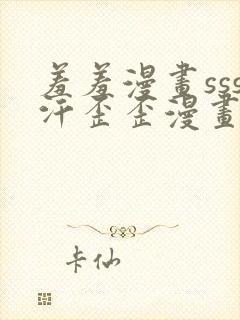 羞羞漫畫sss
汗歪歪漫畫
卡仙